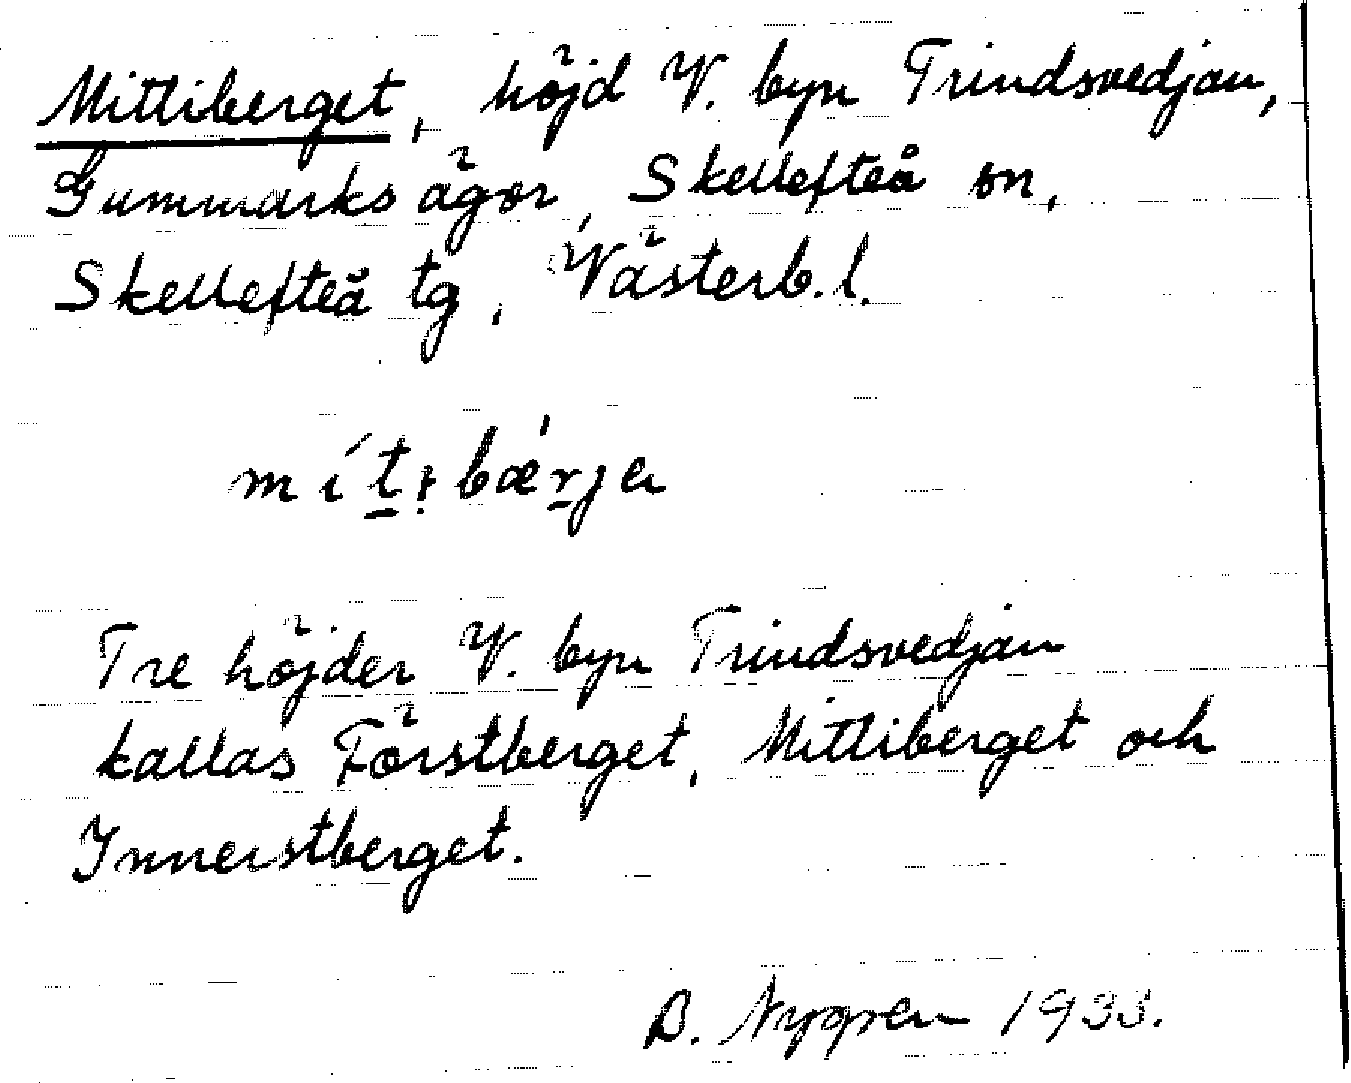 Mittiberget, höjd V. byn Trindsvedjan,
Gummarks ägor, Skellefteå sn,
Skellefteå tg, Västerb. l.
Tre höjder V. byn Trindsvedjan
kallas Förstberget, Mittiberget och
Innerstberget.
B. Nygren 1933.